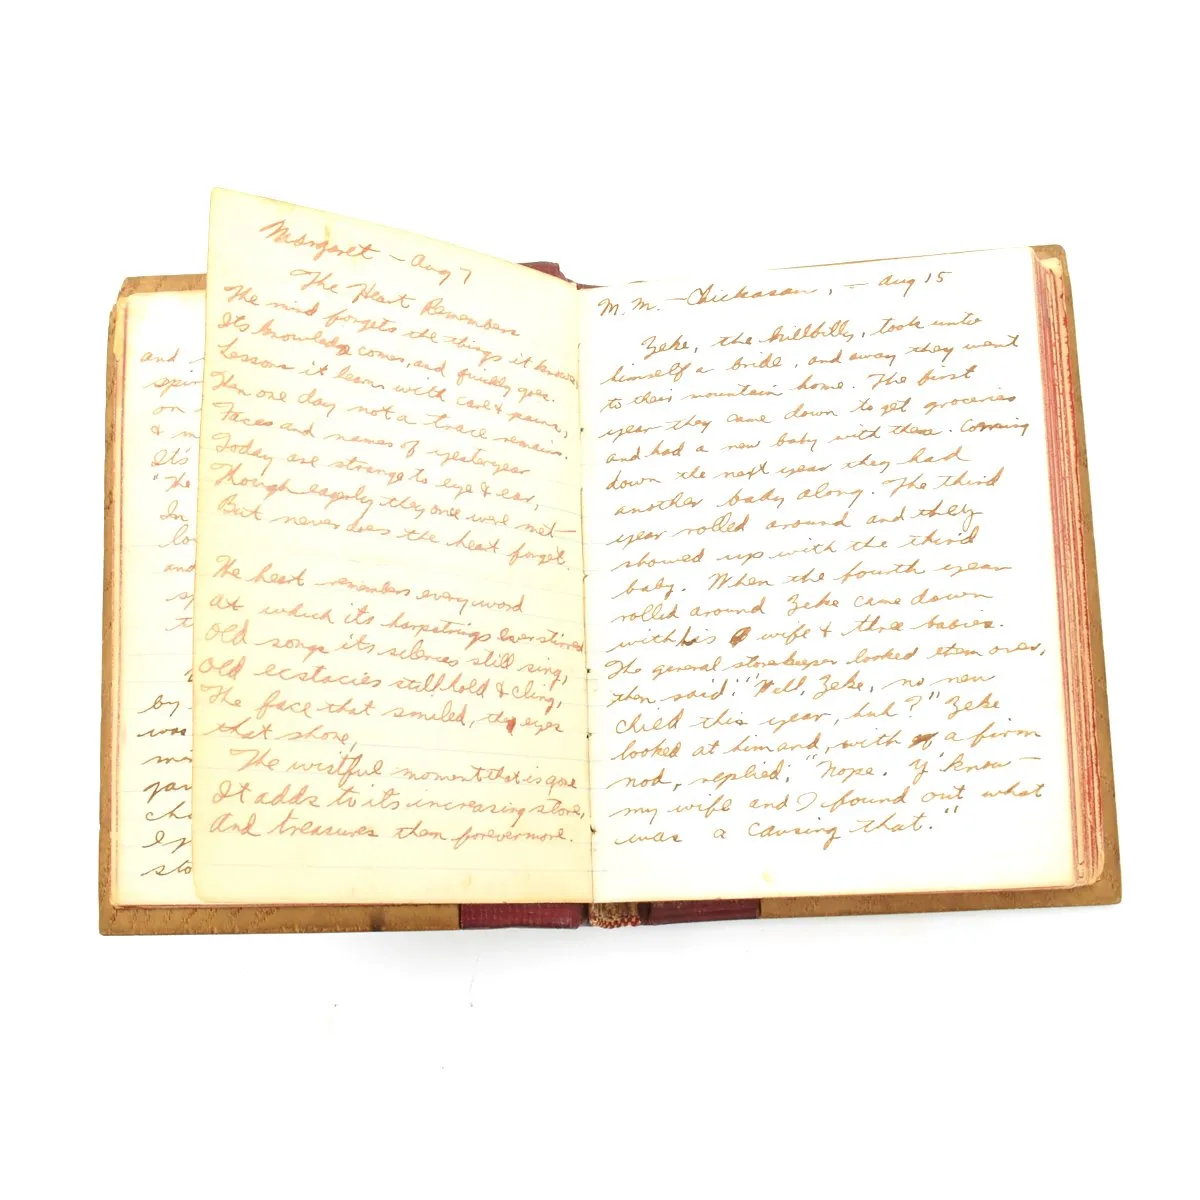 and
spin
on
& m
It's
"The
In
lo
and
sp
t
by
was
me
par
cha
I p
sto
Margaret – Aug 7
The Heart Remembers
The mind forgets the things it knows,
Its knowledge comes, and quickly goes.
Lessons it learns with care & pains,
Than one day not a trace remains.
Faces and names of yesteryear
Today are strange to eye & ear,
Though eagerly they once were met—
But never does the heart forget.
The heart remembers every word
At which its harpstrings ever stirred
Old songs its silences still sing,
Old ecstacies still hold & cling,
The face that smiled, the eyes
that shone,
The wistful moment that is gone
It adds to its increasing store,
And treasures them forevermore.
M. M. – Dickason, – Aug 15
Zeke, the hillbilly, took unto
himself a bride, and away they went
to their mountain home. The first
year they came down to get groceries
and had a new baby with them. Coming
down the next year they had
another baby along. The third
year rolled around and they
showed up with the third
baby. When the fourth year
rolled around Zeke came down
with his wife & three babies.
The general storekeeper looked them over,
then said: "Well, Zeke, no new
child this year, huh?" Zeke
looked at him and, with a firm
nod, replied: "Nope. Y' know—
my wife and I found out what
was a causing that."